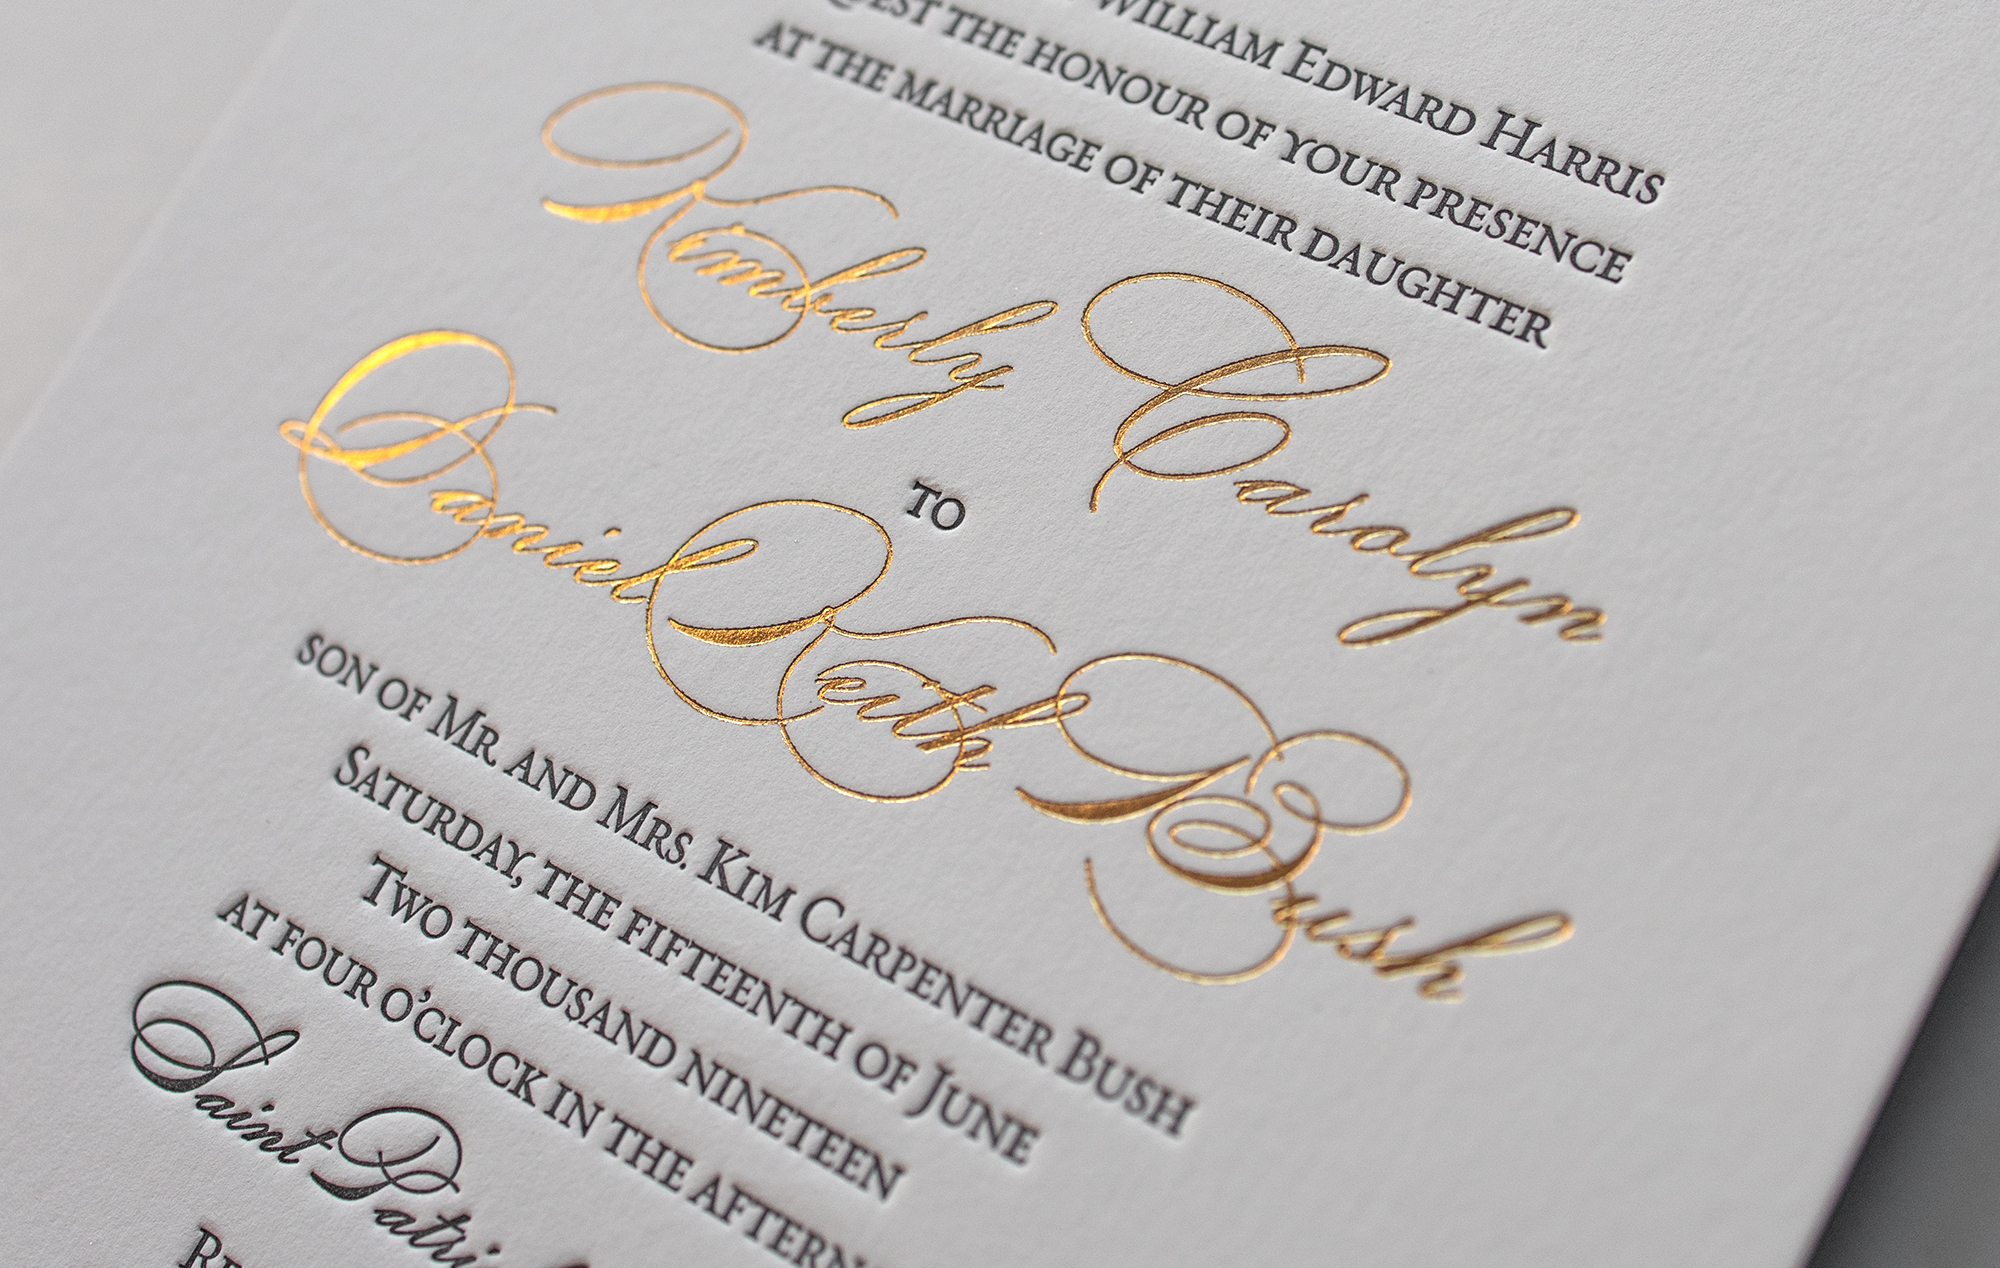 William Edward Harris
the honour of your presence
at the marriage of their daughter
Kimberly Carolyn
to
Daniel Keith Bush
son of Mr. and Mrs. Kim Carpenter Bush
Saturday, the fifteenth of June
Two thousand nineteen
at four o'clock in the
Saint